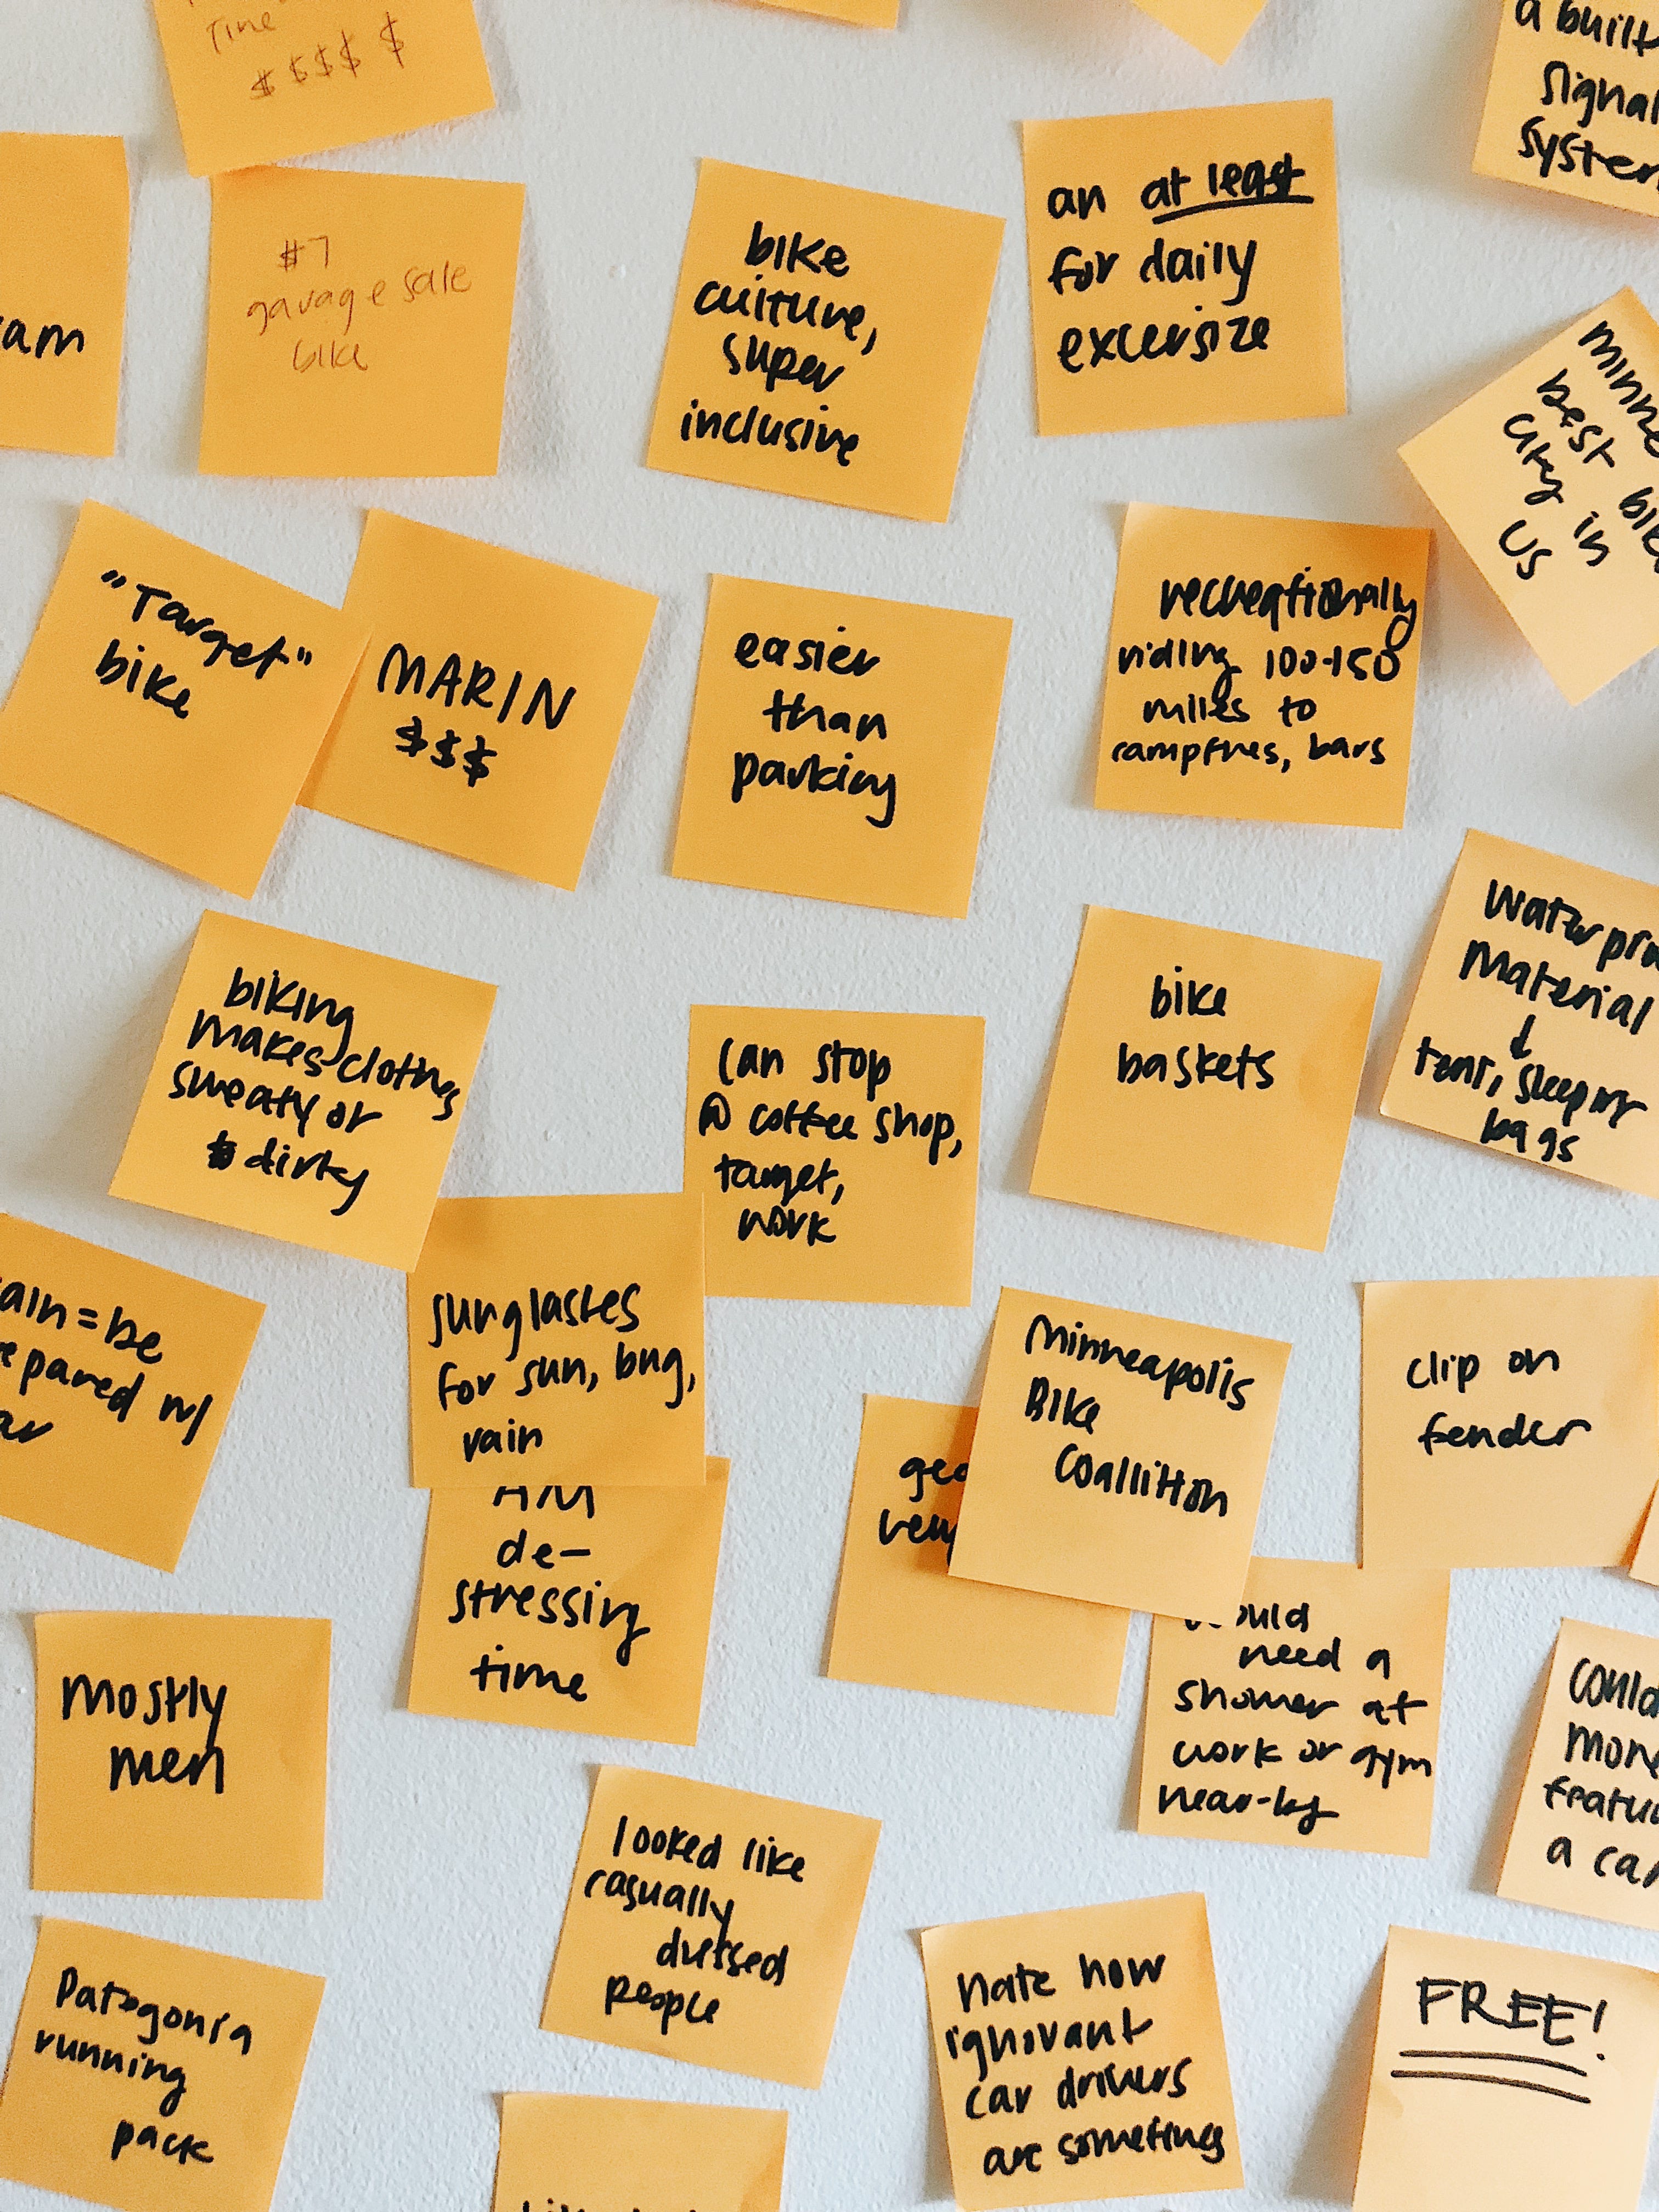 $$$$ $
a built
signal
system
#7
garage sale
bike
bike
culture,
super
inclusive
an at least
for daily
excersize
am
best
city in
US
"Target"
bike
MARIN
$$$
easier
than
parking
recreationally
riding 100-150
miles to
campfires, bars
biking
makes clothes
sweaty or
dirty
can stop
@ coffee shop,
target,
work
bike
baskets
Material
↓
bags
= be
w/
sunglasses
for sun, bug,
rain
AM
de-
stressing
time
Minneapolis
Bike
Coallition
clip on
fender
need a
shower at
work or gym
near-by
mostly
men
looked like
casually
dressed
people
could
more
a car
Patagonia
running
pack
hate how
ignorant
car drivers
are sometimes
FREE!